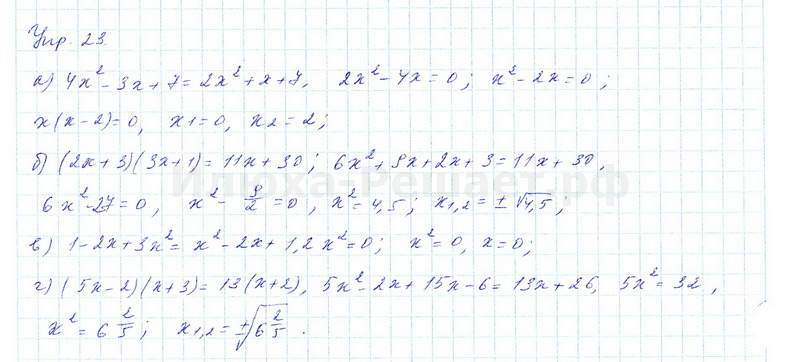 Упр. 23.
а) 4x² - 3x + 7 = 2x² + x + 7, 2x² - 4x = 0; x² - 2x = 0;
x(x-2)=0, x1=0, x2=2;
б) (2x+3)(3x+1) = 11x + 30; 6x² + 9x + 2x + 3 = 11x + 30,
Илюха-Решает.рф
6x² - 27 = 0, x² - 9/2 = 0, x² = 4,5; x1,2 = ± √4,5;
в) 1 - 2x + 3x² = x² - 2x + 1, 2x² = 0; x² = 0, x = 0;
г) (5x-2)(x+3) = 13(x+2), 5x² - 2x + 15x - 6 = 13x + 26, 5x² = 32,
x² = 6 2/5; x1,2 = ±√6 2/5.